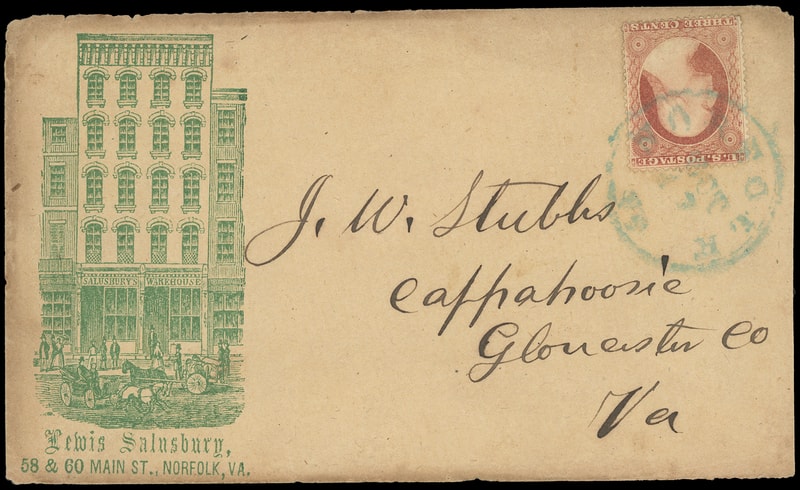 THREE CENTS
U.S. POSTAGE
NORFOLK
SALUSBURY'S WAREHOUSE
J. W. Stubbs
Cappahoosie
Gloucester Co
Va
Lewis Salusbury,
58 & 60 MAIN ST., NORFOLK, VA.